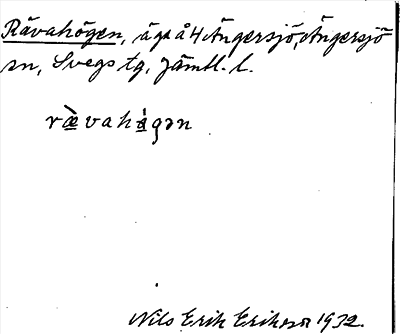 Rävahögen, äga å 4 Ängersjö, Ängersjö
sn, Svegs tg, Jämtl. l.
rævahågən
Nils Erik Erikson 1932.